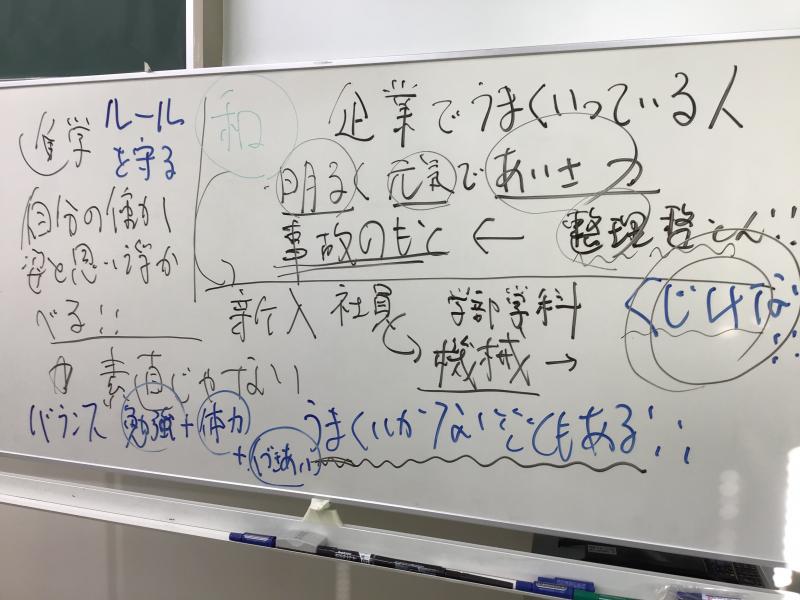 進学 ルールを守る
自分の働く
姿を思い浮か
べる!!
素直じゃない
バランス 勉強+体力
+(づきあい)
和
企業でうまくいっている人
明るく 元気で あいさつ
事故のもと ← 整理整とん!!
新入社員 学部学科
機械→
くじけない!!
うまくいかないこともある!!